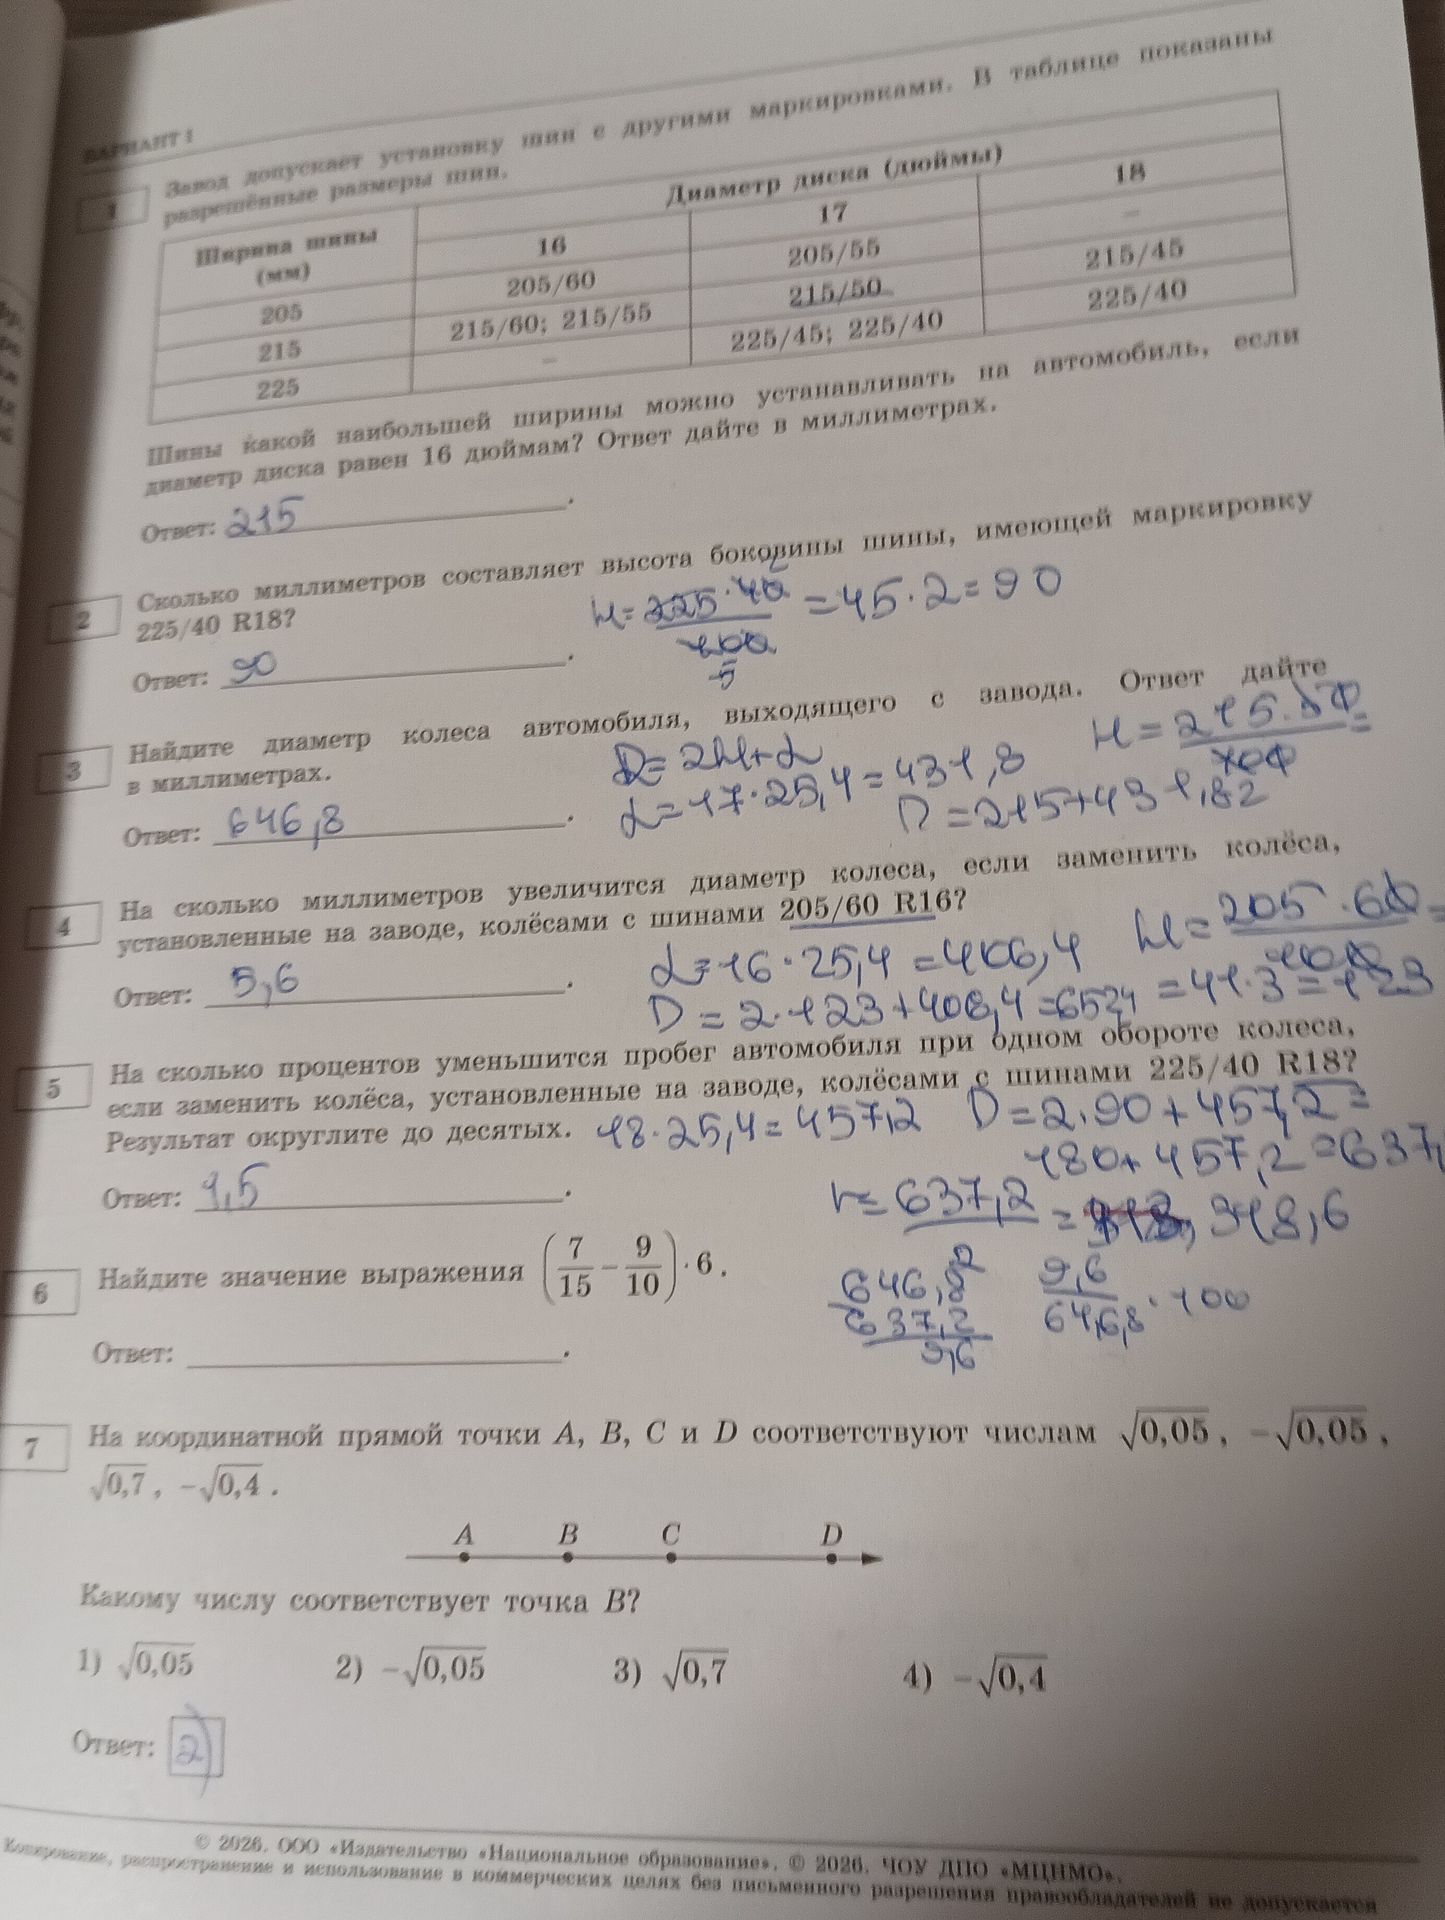 ВАРИАНТ 1
1
Завод допускает установку шин с другими маркировками. В таблице показаны
разрешённые размеры шин.
Ширина шины
(мм)
Диаметр диска (дюймы)
16
17
18
205
205/60
205/55
–
215
215/60; 215/55
215/50
215/45
225
–
225/45; 225/40
225/40
Шины какой наибольшей ширины можно устанавливать на автомобиль, если
диаметр диска равен 16 дюймам? Ответ дайте в миллиметрах.
Ответ: 215.
2
Сколько миллиметров составляет высота боковины шины, имеющей маркировку
225/40 R18?
H = 225 · 40 / 100 = 45 · 2 = 90
2
5
Ответ: 90.
3
Найдите диаметр колеса автомобиля, выходящего с завода. Ответ дайте
в миллиметрах.
D = 2H + d
H = 215 · 50 / 100 =
d = 17 · 25,4 = 431,8
D = 215 + 431,8
Ответ: 646,8.
4
На сколько миллиметров увеличится диаметр колеса, если заменить колёса,
установленные на заводе, колёсами с шинами 205/60 R16?
H = 205 · 60 / 100 =
d = 16 · 25,4 = 406,4
= 41 · 3 = 123
D = 2 · 123 + 406,4 = 652,4
Ответ: 5,6.
5
На сколько процентов уменьшится пробег автомобиля при одном обороте колеса,
если заменить колёса, установленные на заводе, колёсами с шинами 225/40 R18?
Результат округлите до десятых.
18 · 25,4 = 457,2
D = 2 · 90 + 457,2 =
180 + 457,2 = 637,
Ответ: 1,5.
r = 637,2 / 2 = 318,6
646,8
637,2
9,6
9,6 / 646,8 · 100
6
Найдите значение выражения (7/15 − 9/10) · 6.
Ответ: .
7
На координатной прямой точки A, B, C и D соответствуют числам √0,05, −√0,05,
√0,7, −√0,4.
A B C D
Какому числу соответствует точка B?
1) √0,05 2) −√0,05 3) √0,7 4) −√0,4
Ответ: 2)
© 2026. ООО «Издательство «Национальное образование». © 2026. ЧОУ ДПО «МЦНМО».
Копирование, распространение и использование в коммерческих целях без письменного разрешения правообладателей не допускается